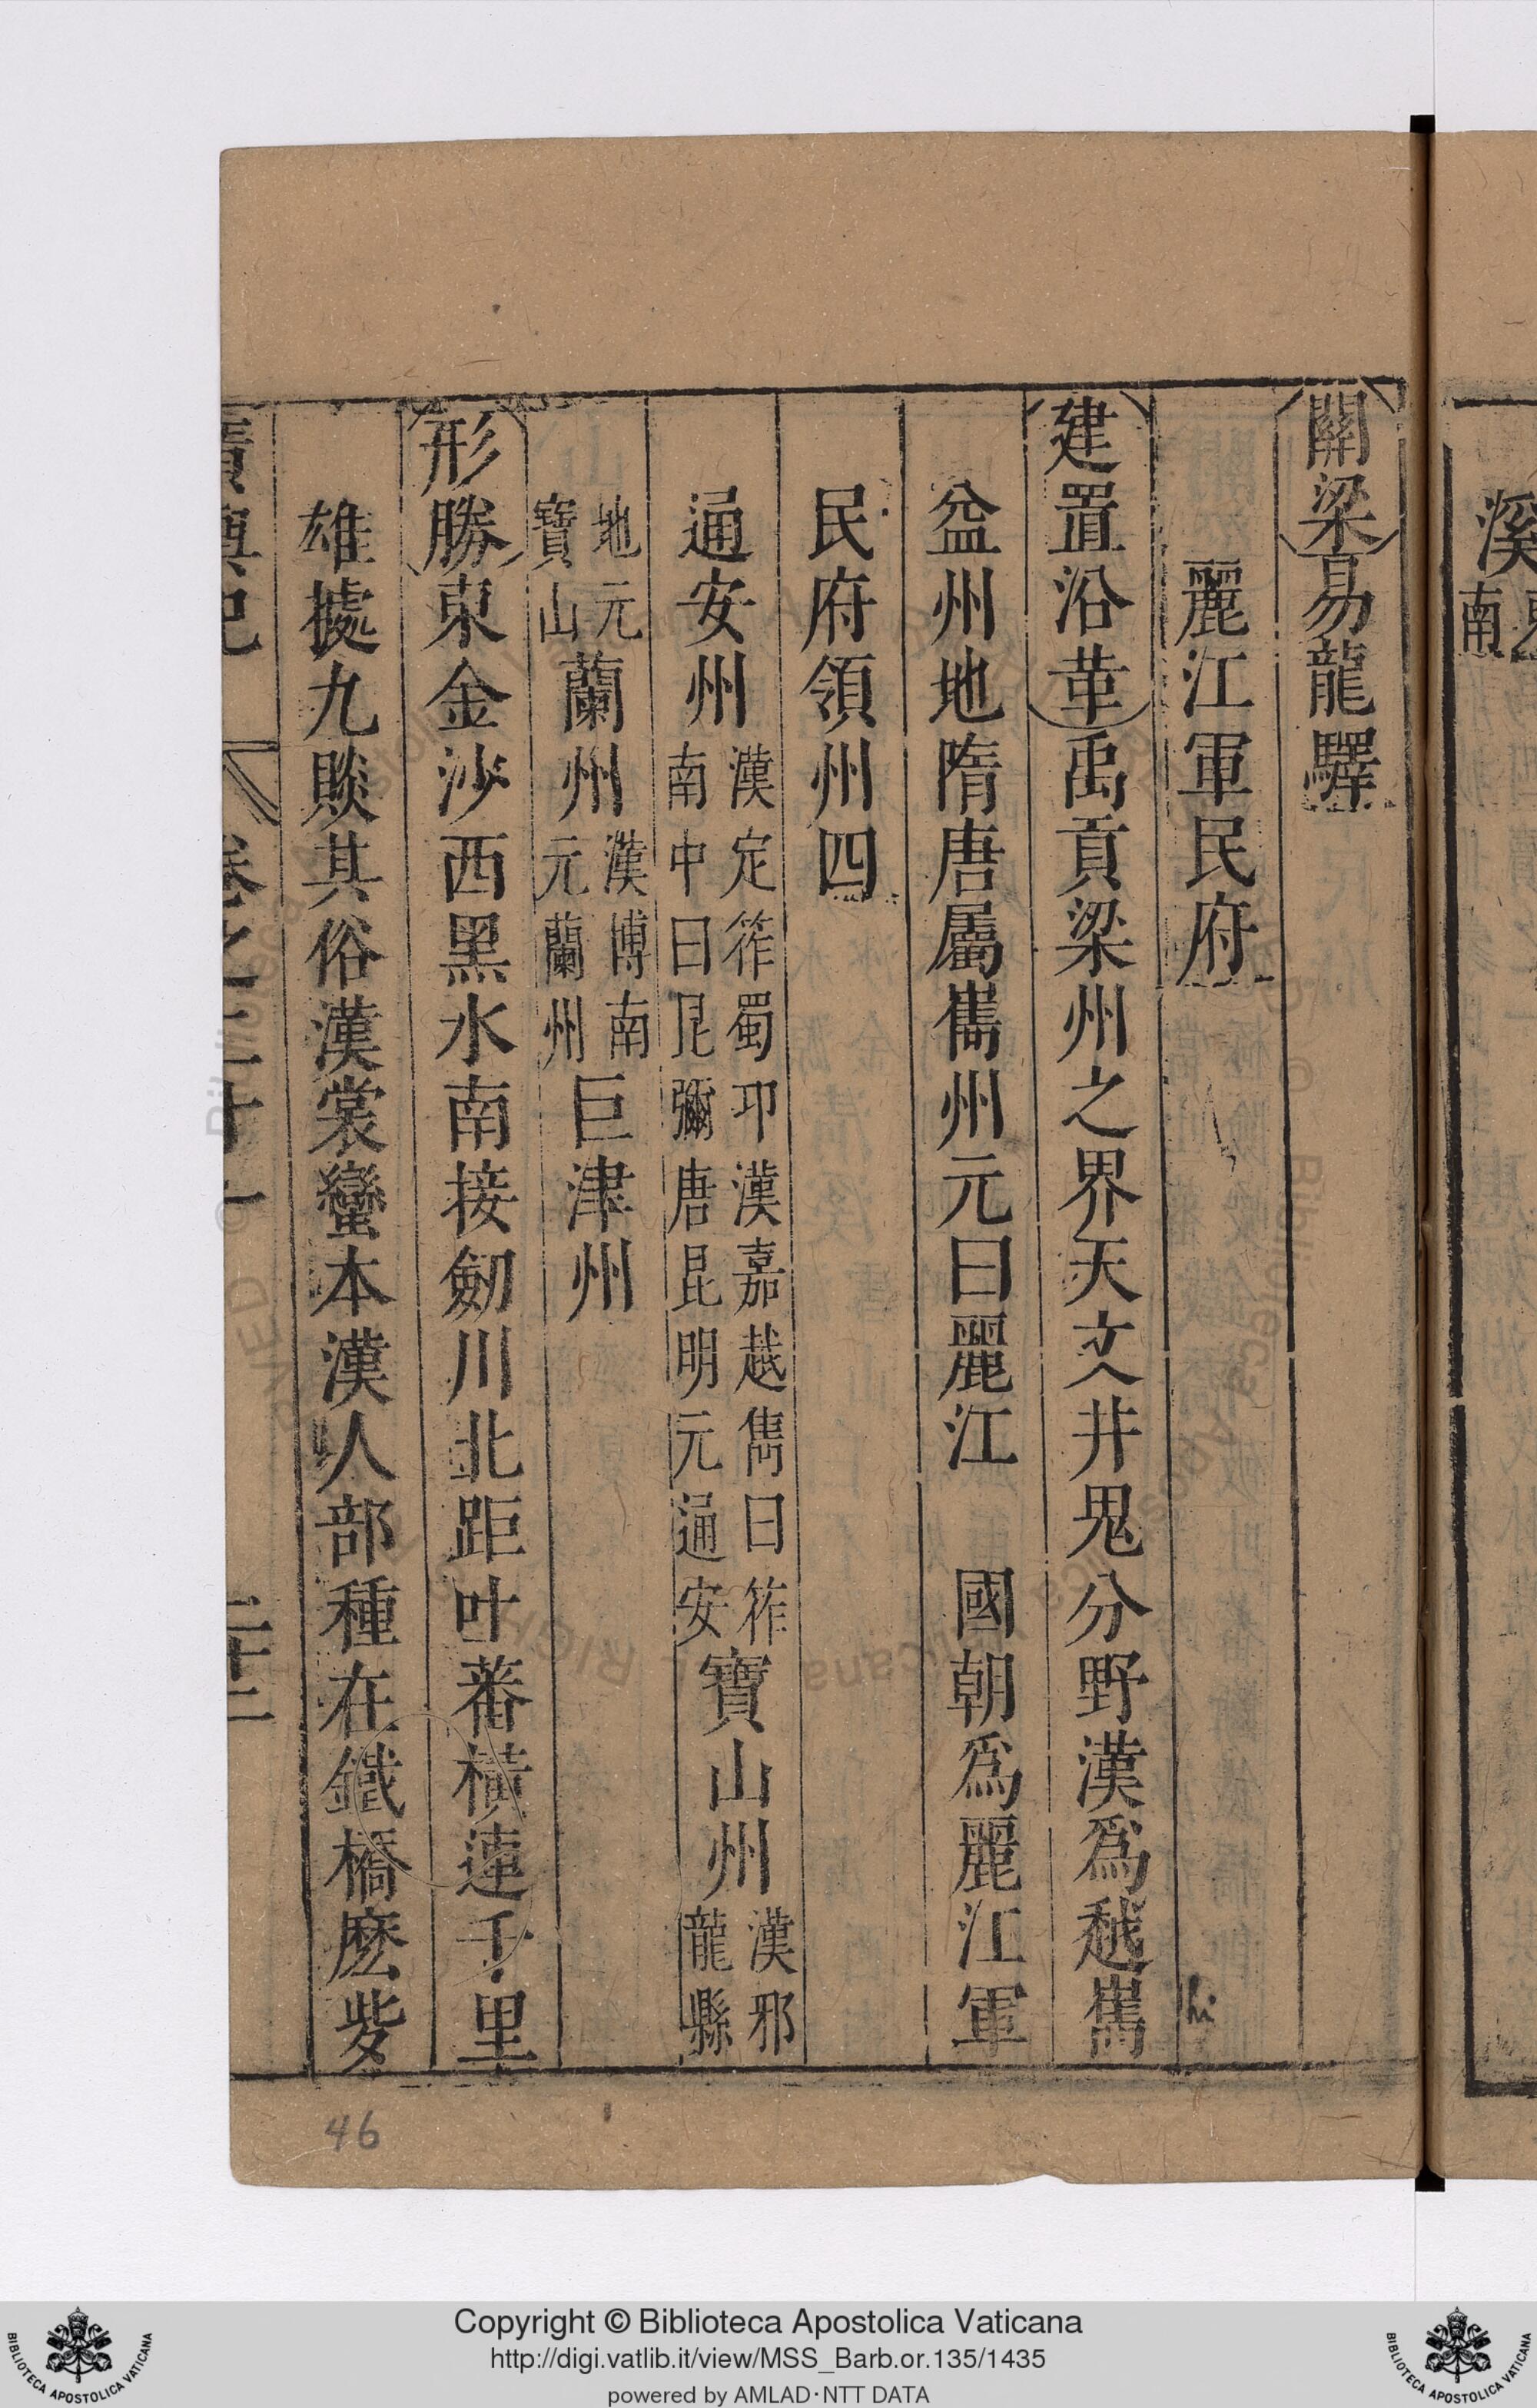 溪
南
關梁易龍驛
麗江軍民府
建置沿革禹貢梁州之界天文井鬼分野漢為越嶲
益州地隋唐屬嶲州元曰麗江 國朝為麗江軍
民府領州四
通安州漢定筰蜀邛漢嘉越雋曰筰
南中曰昆彌唐昆明元通安寶山州漢邪
龍縣
地元
寶山蘭州漢博南
元蘭州巨津州
形勝東金沙西黑水南接劒川北距吐蕃橫連千里
雄據九賧其俗漢裳蠻本漢人部種在鐵橋麽㱔
廣輿記 卷之二十一 二十二
46
Copyright © Biblioteca Apostolica Vaticana
http://digi.vatlib.it/view/MSS_Barb.or.135/1435
powered by AMLAD·NTT DATA
BIBLIOTECA APOSTOLICA VATICANA
BIBLIOTECA APOSTOLICA VATICANA